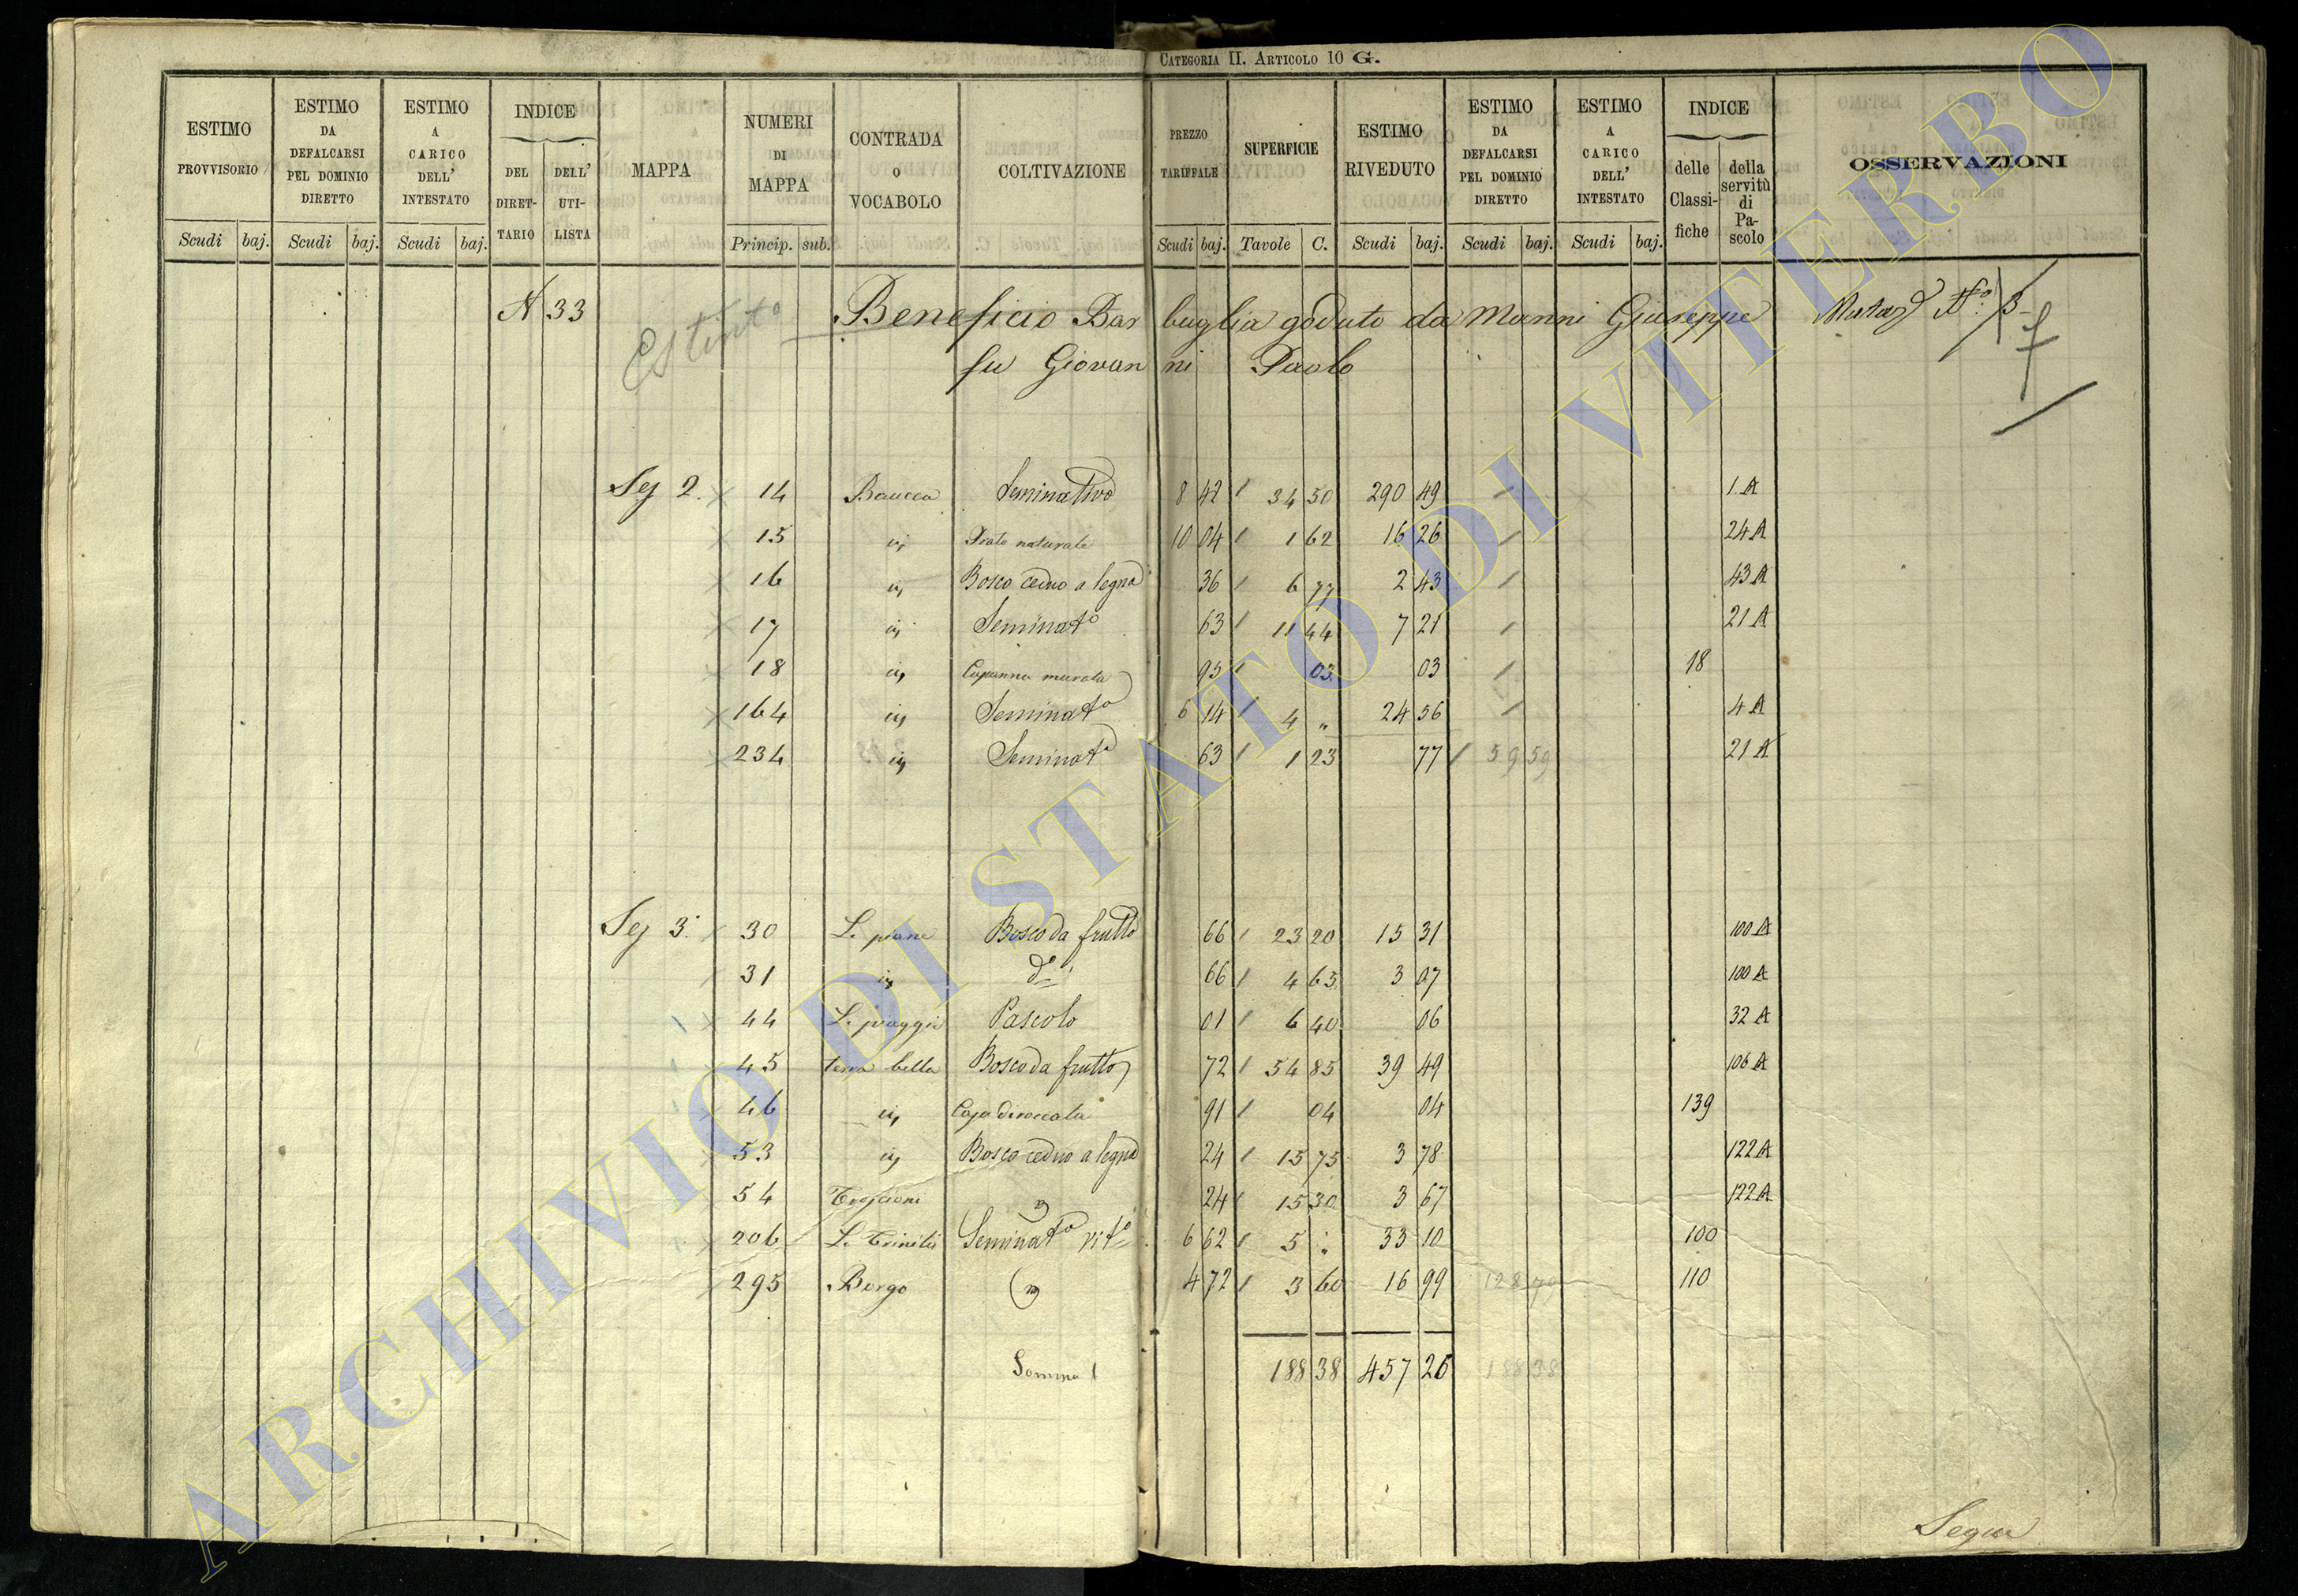 CATEGORIA II. ARTICOLO 10 G.
ESTIMO PROVVISORIO Scudi baj. ESTIMO DA DEFALCARSI PEL DOMINIO DIRETTO Scudi baj. ESTIMO A CARICO DELL' INTESTATO Scudi baj. INDICE DEL DIRET-TARIO DELL' UTI-LISTA MAPPA NUMERI DI MAPPA Princip. sub. CONTRADA O VOCABOLO COLTIVAZIONE PREZZO TARIFFALE Scudi baj. SUPERFICIE Tavole C. ESTIMO RIVEDUTO Scudi baj. ESTIMO DA DEFALCARSI PEL DOMINIO DIRETTO Scudi baj. ESTIMO A CARICO DELL' INTESTATO Scudi baj. INDICE delle Classi-fiche della servitù di Pa-scolo OSSERVAZIONI
N 33 Estinto Beneficio Barbuglia goduto da Manni Giuseppe
fu Giovanni Paolo
Sez 2. 14 Seminativo 8 42 34 50 290 49 1 A
15 Prato naturale 10 04 1 62 16 26 24 A
16 Bosco ceduo a legna 36 6 77 2 43 43 A
17 Seminato 63 11 44 7 21 21 A
18 Capanna murata 95 03 03 18
164 Seminato 6 14 4 „ 24 56 4 A
234 Seminato 63 1 23 77 59 59 21 A
Sez 3. 30 Le piane Bosco da frutto 66 23 20 15 31 100 A
31 do 66 4 65 3 07 100 A
44 Le piaggie Pascolo 01 6 40 06 32 A
45 terra bella Bosco da frutto 72 54 85 39 49 106 A
46 Casa diroccata 91 04 04 139
53 Bosco ceduo a legna 24 15 75 3 78 122 A
54 24 15 30 3 67 122 A
206 La Trinità Seminato vito 6 62 5 „ 33 10 100
295 Borgo 4 72 3 60 16 99 128 79 110
Somma 188 38 457 26 188 38
Segue
ARCHIVIO DI STATO DI VITERBO